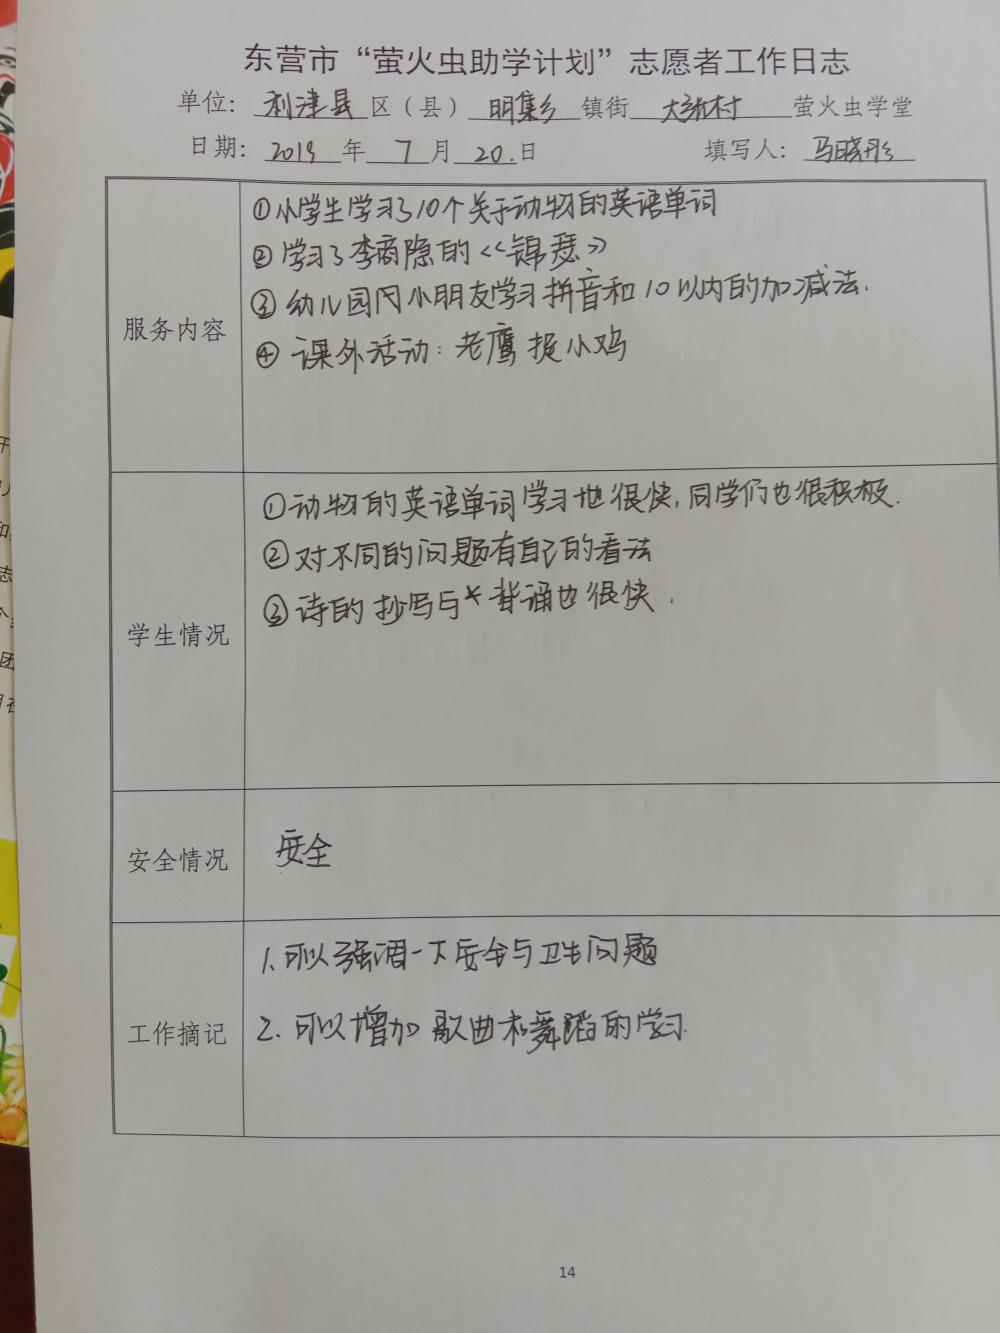 东营市“萤火虫助学计划”志愿者工作日志
单位：利津县区（县）明集乡镇街村萤火虫学堂
日期：2019年7月20.日 填写人：马晓彤
服务内容
①小学生学习了10个关于动物的英语单词
②学习了李商隐的《锦瑟》
③幼儿园同小朋友学习拼音和10以内的加减法.
④课外活动：老鹰捉小鸡
学生情况
①动物的英语单词学习地很快,同学们也很积极.
②对不同的问题有自己的看法
③诗的抄写与背诵也很快.
安全情况
安全
工作摘记
1.可以强调一下安全与卫生问题
2.可以增加歌曲和舞蹈的学习.
14